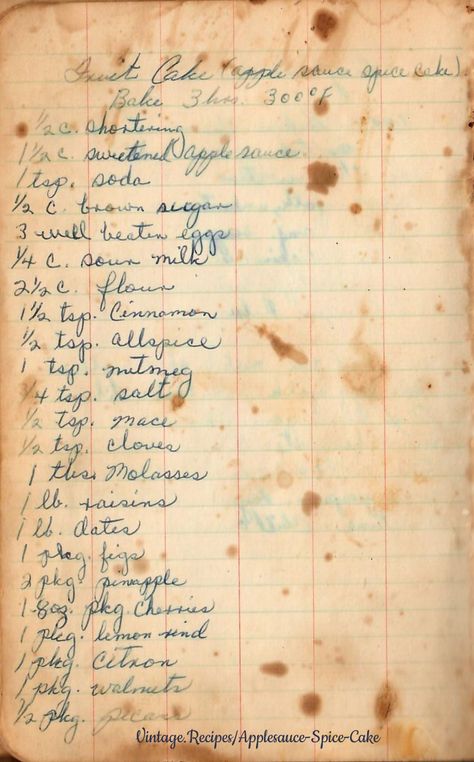 Fruit Cake (apple sauce spice cake)
Bake 3 hrs. 300°F
1/2 c. shortering
1 1/2 c. sweetened apple sauce
1 tsp. soda
1/2 c. brown sugar
3 well beaten eggs
1/4 c. sour milk
2 1/2 c. flour
1 1/2 tsp. Cinnamon
1/2 tsp. allspice
1 tsp. nutmeg
1/4 tsp. salt
1/2 tsp. mace
1/2 tsp. cloves
1 tbs. Molasses
1 lb. raisins
1 lb. dates
1 pkg. figs
2 pkg pineapple
1-8oz. pkg cherries
1 pkg. lemon rind
1 pkg. citron
1 pkg. walnuts
1/2 pkg. pecans
Vintage.Recipes/Applesauce-Spice-Cake